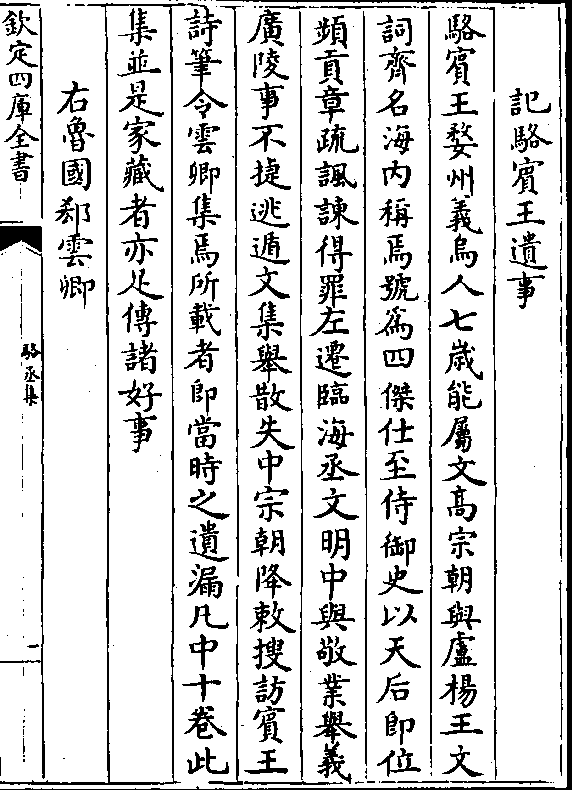 記駱賓王遺事
駱賓王婺州義烏人七歲能屬文高宗朝與盧楊王文
詞齊名海內稱焉號為四傑仕至侍御史以天后即位
頻貢章疏諷諫得罪左遷臨海丞文明中與敬業舉義
廣陵事不捷逃遁文集舉散失中宗朝降敕搜訪賓王
詩筆令雲卿集焉所載者即當時之遺漏凡中十卷此
集並是家藏者亦足傳諸好事
右魯國郗雲卿
欽定四庫全書
駱丞集
一